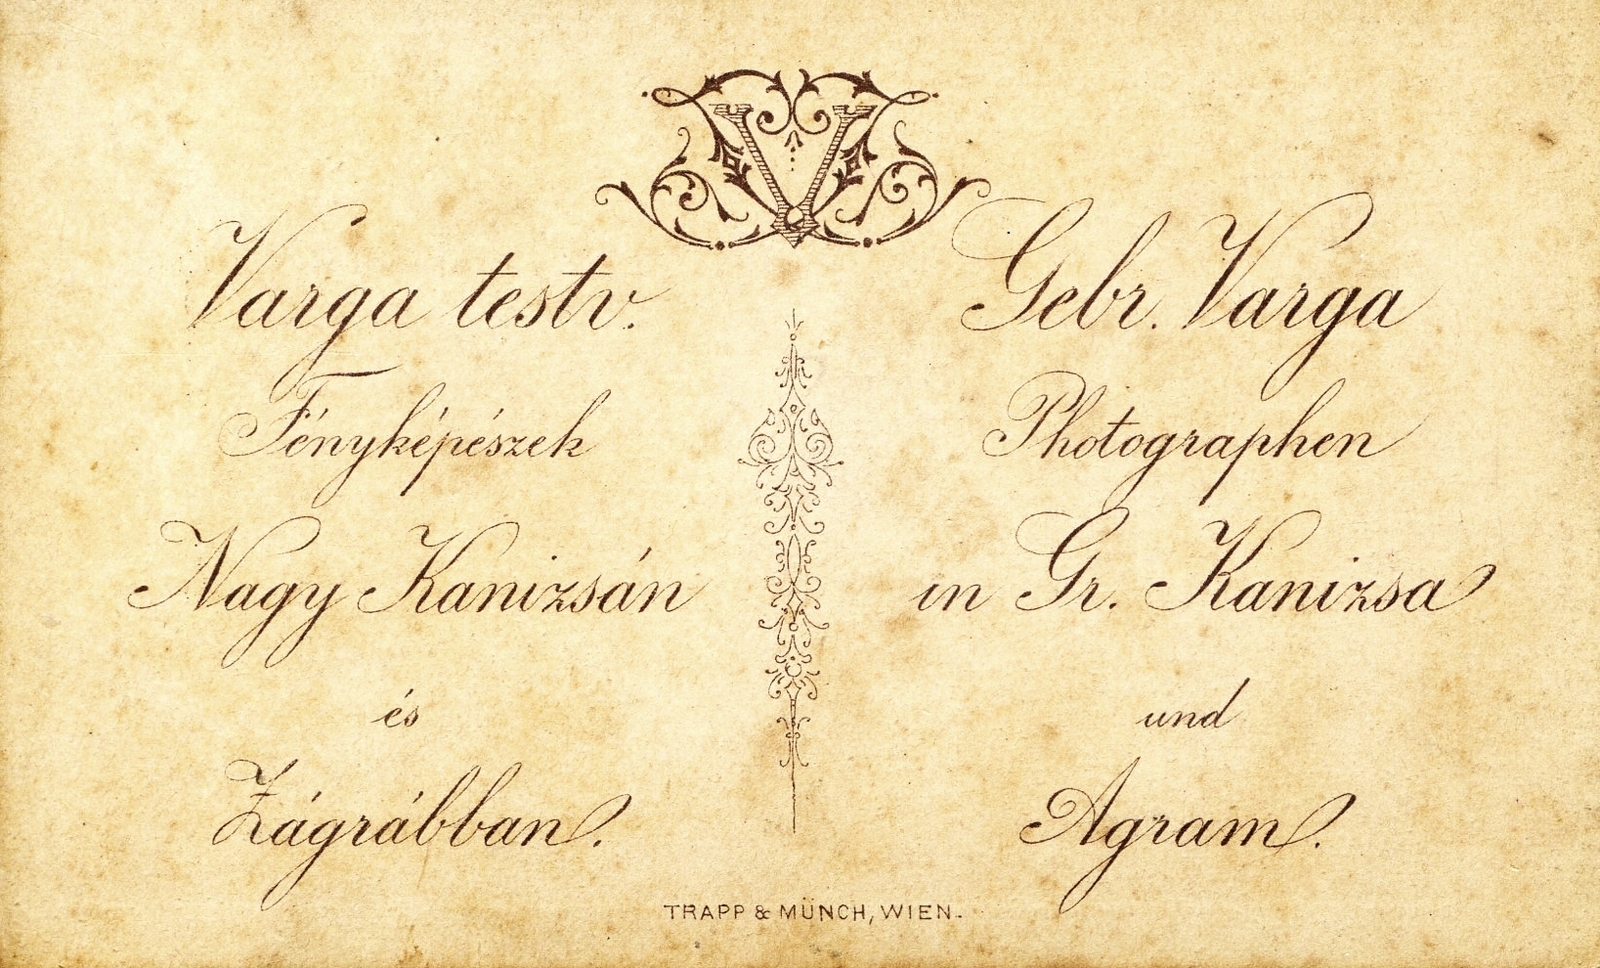 V
Varga testv.
Fényképészek
Nagy Kanizsán
és
Zágrábban.
Gebr. Varga
Photographen
in Gr. Kanizsa
und
Agram.
TRAPP & MÜNCH, WIEN.